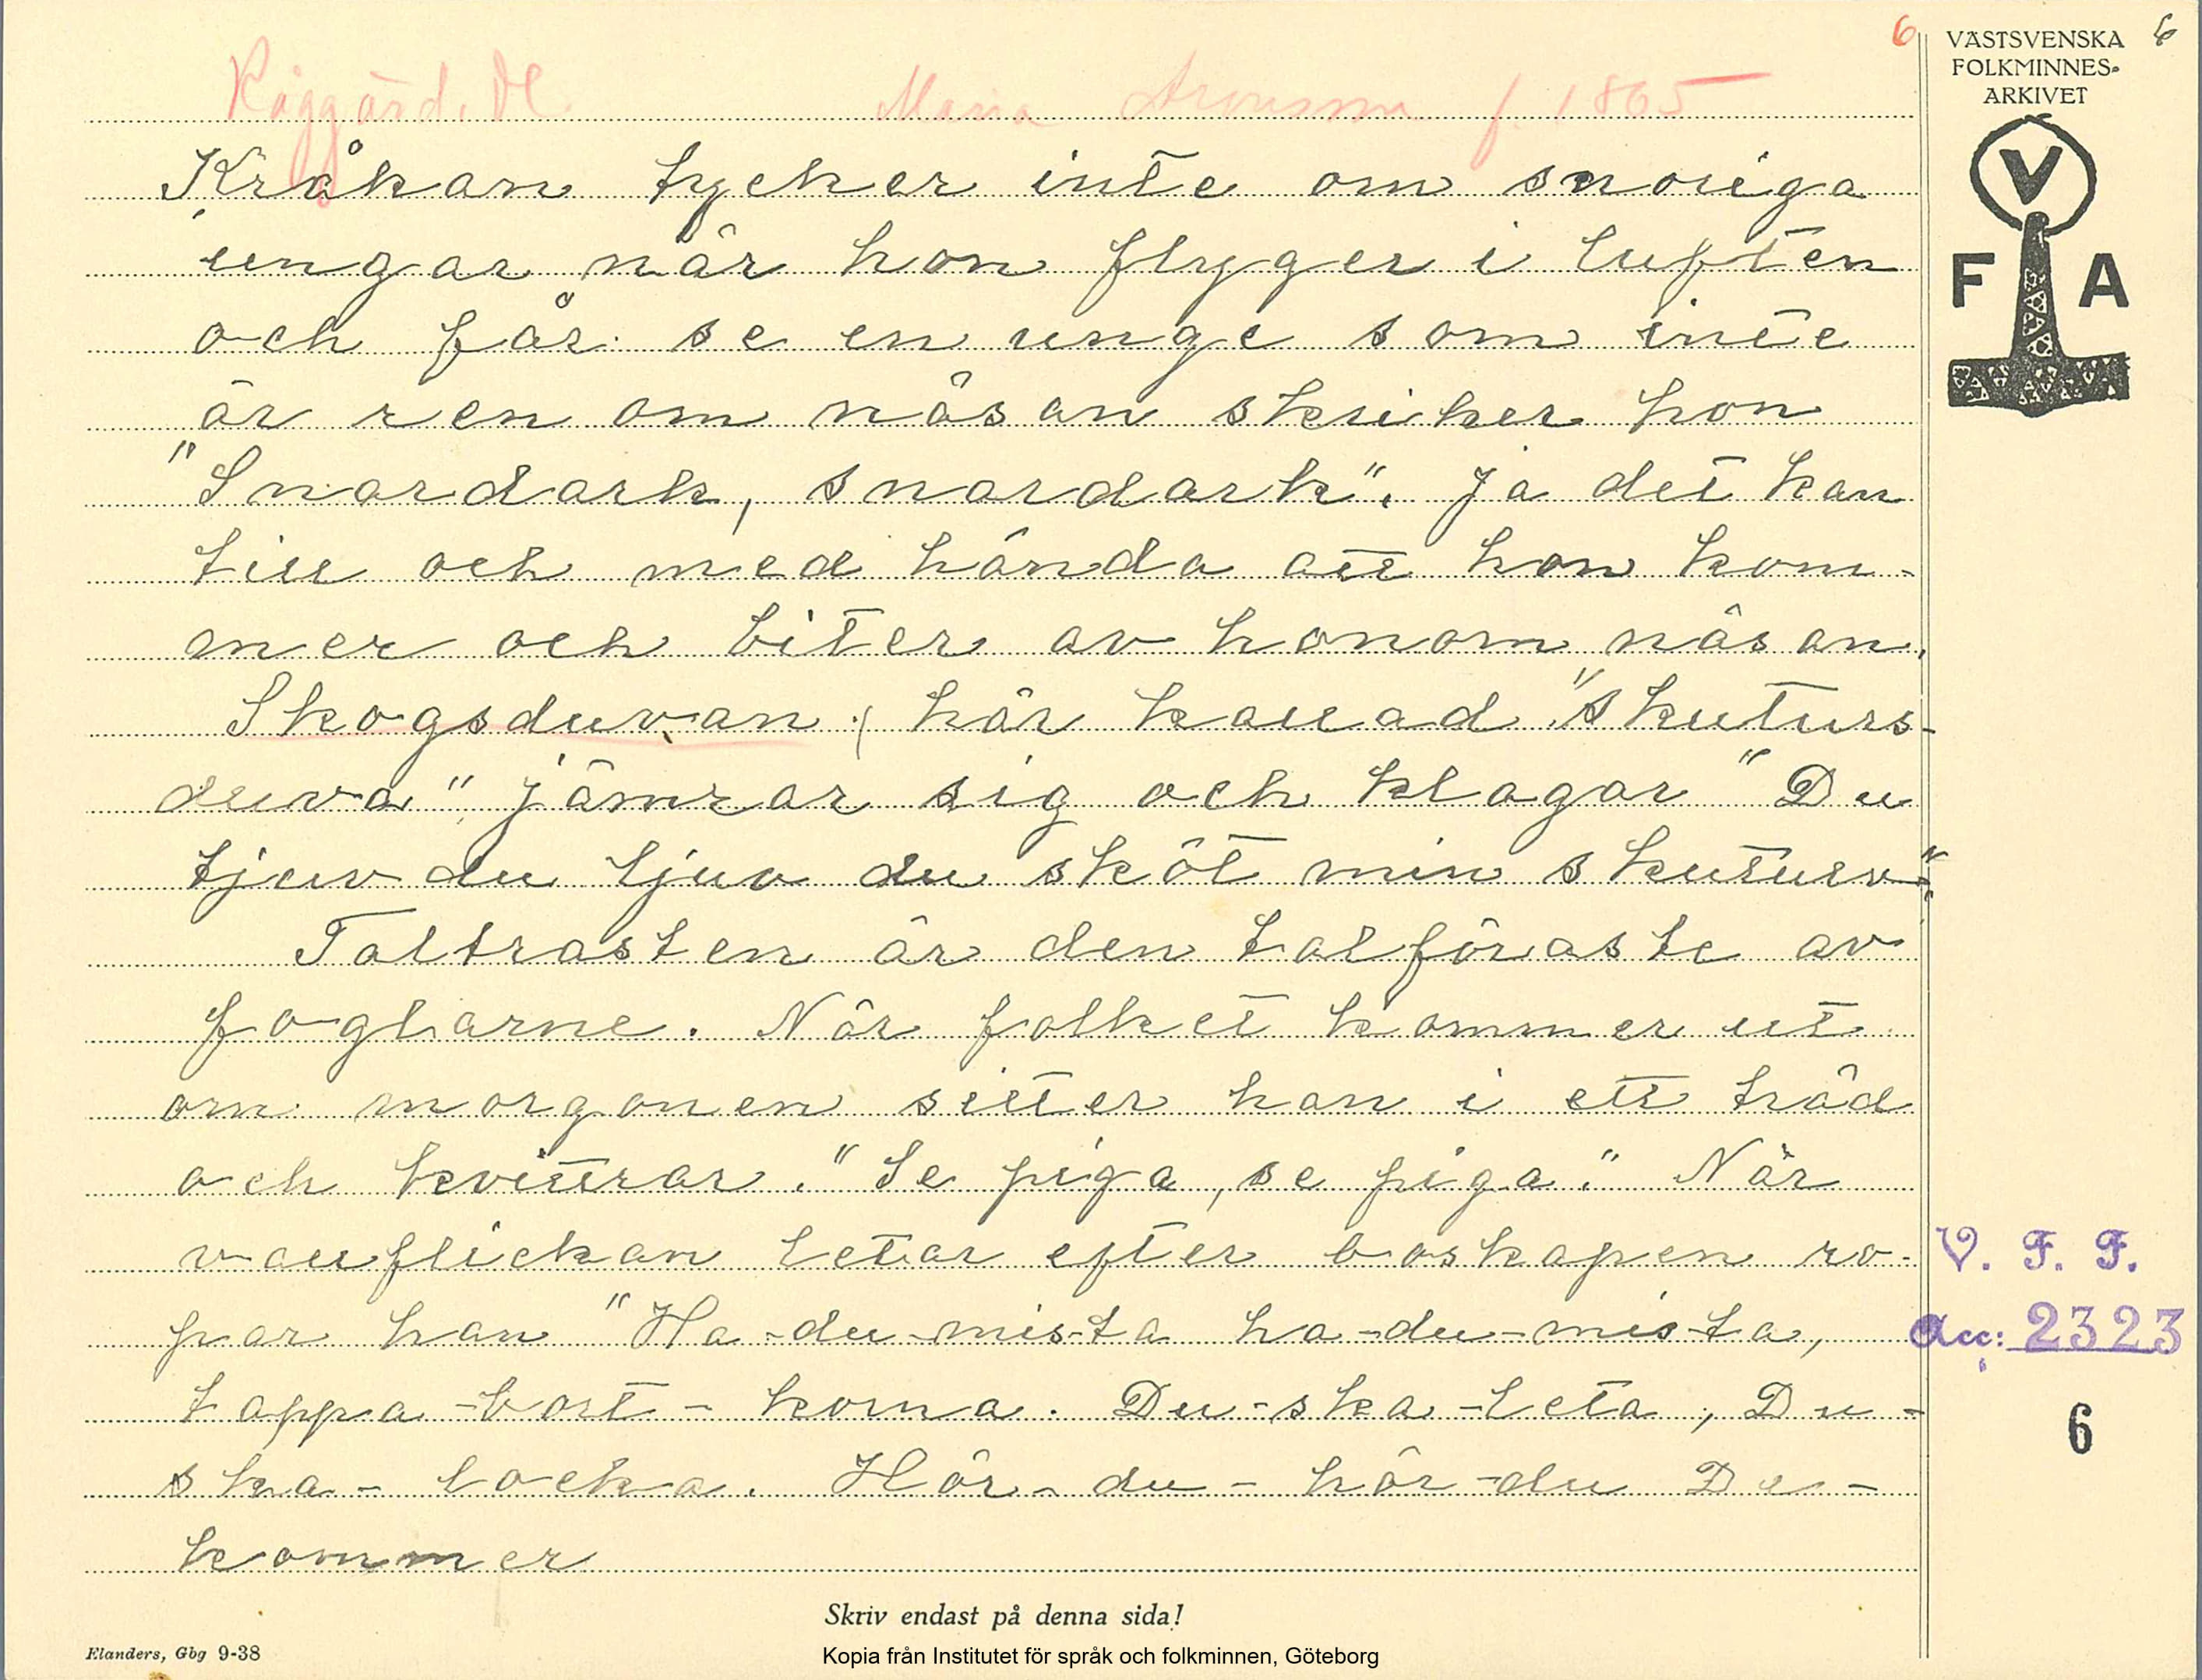 6
6
VÄSTSVENSKA
FOLKMINNES-
ARKIVET
V
F A
Råggärd. Dl. Maria Aronsson f. 1865
Kråkan tycker inte om snoriga
ungar när hon flyger i luften
och får se en unge som inte
är ren om näsan skriker hon
"Snordark, snordark". Ja det kan
till och med hända att hon kom-
mer och biter av honom näsan.
Skogsduvan, här kallad "skuturs-
duva" jämrar sig och klagar "Du
tjuv du tjuv du sköt min skuturv".
Taltrasten är den talföraste av
foglarne. När folket kommer ut
om morgonen sitter han i ett träd
och kvittrar. "Se piga, se piga." När
vallflickan letar efter boskapen ro-
par han "Ha-du-mista ha-du-mista,
tappa-bort-korna. Du-ska-leta, Du-
ska-locka. Hör-du-hör-du De-
kommer
V. F. F.
Acc: 2323
6
Skriv endast på denna sida!
Elanders, Gbg 9-38
Kopia från Institutet för språk och folkminnen, Göteborg